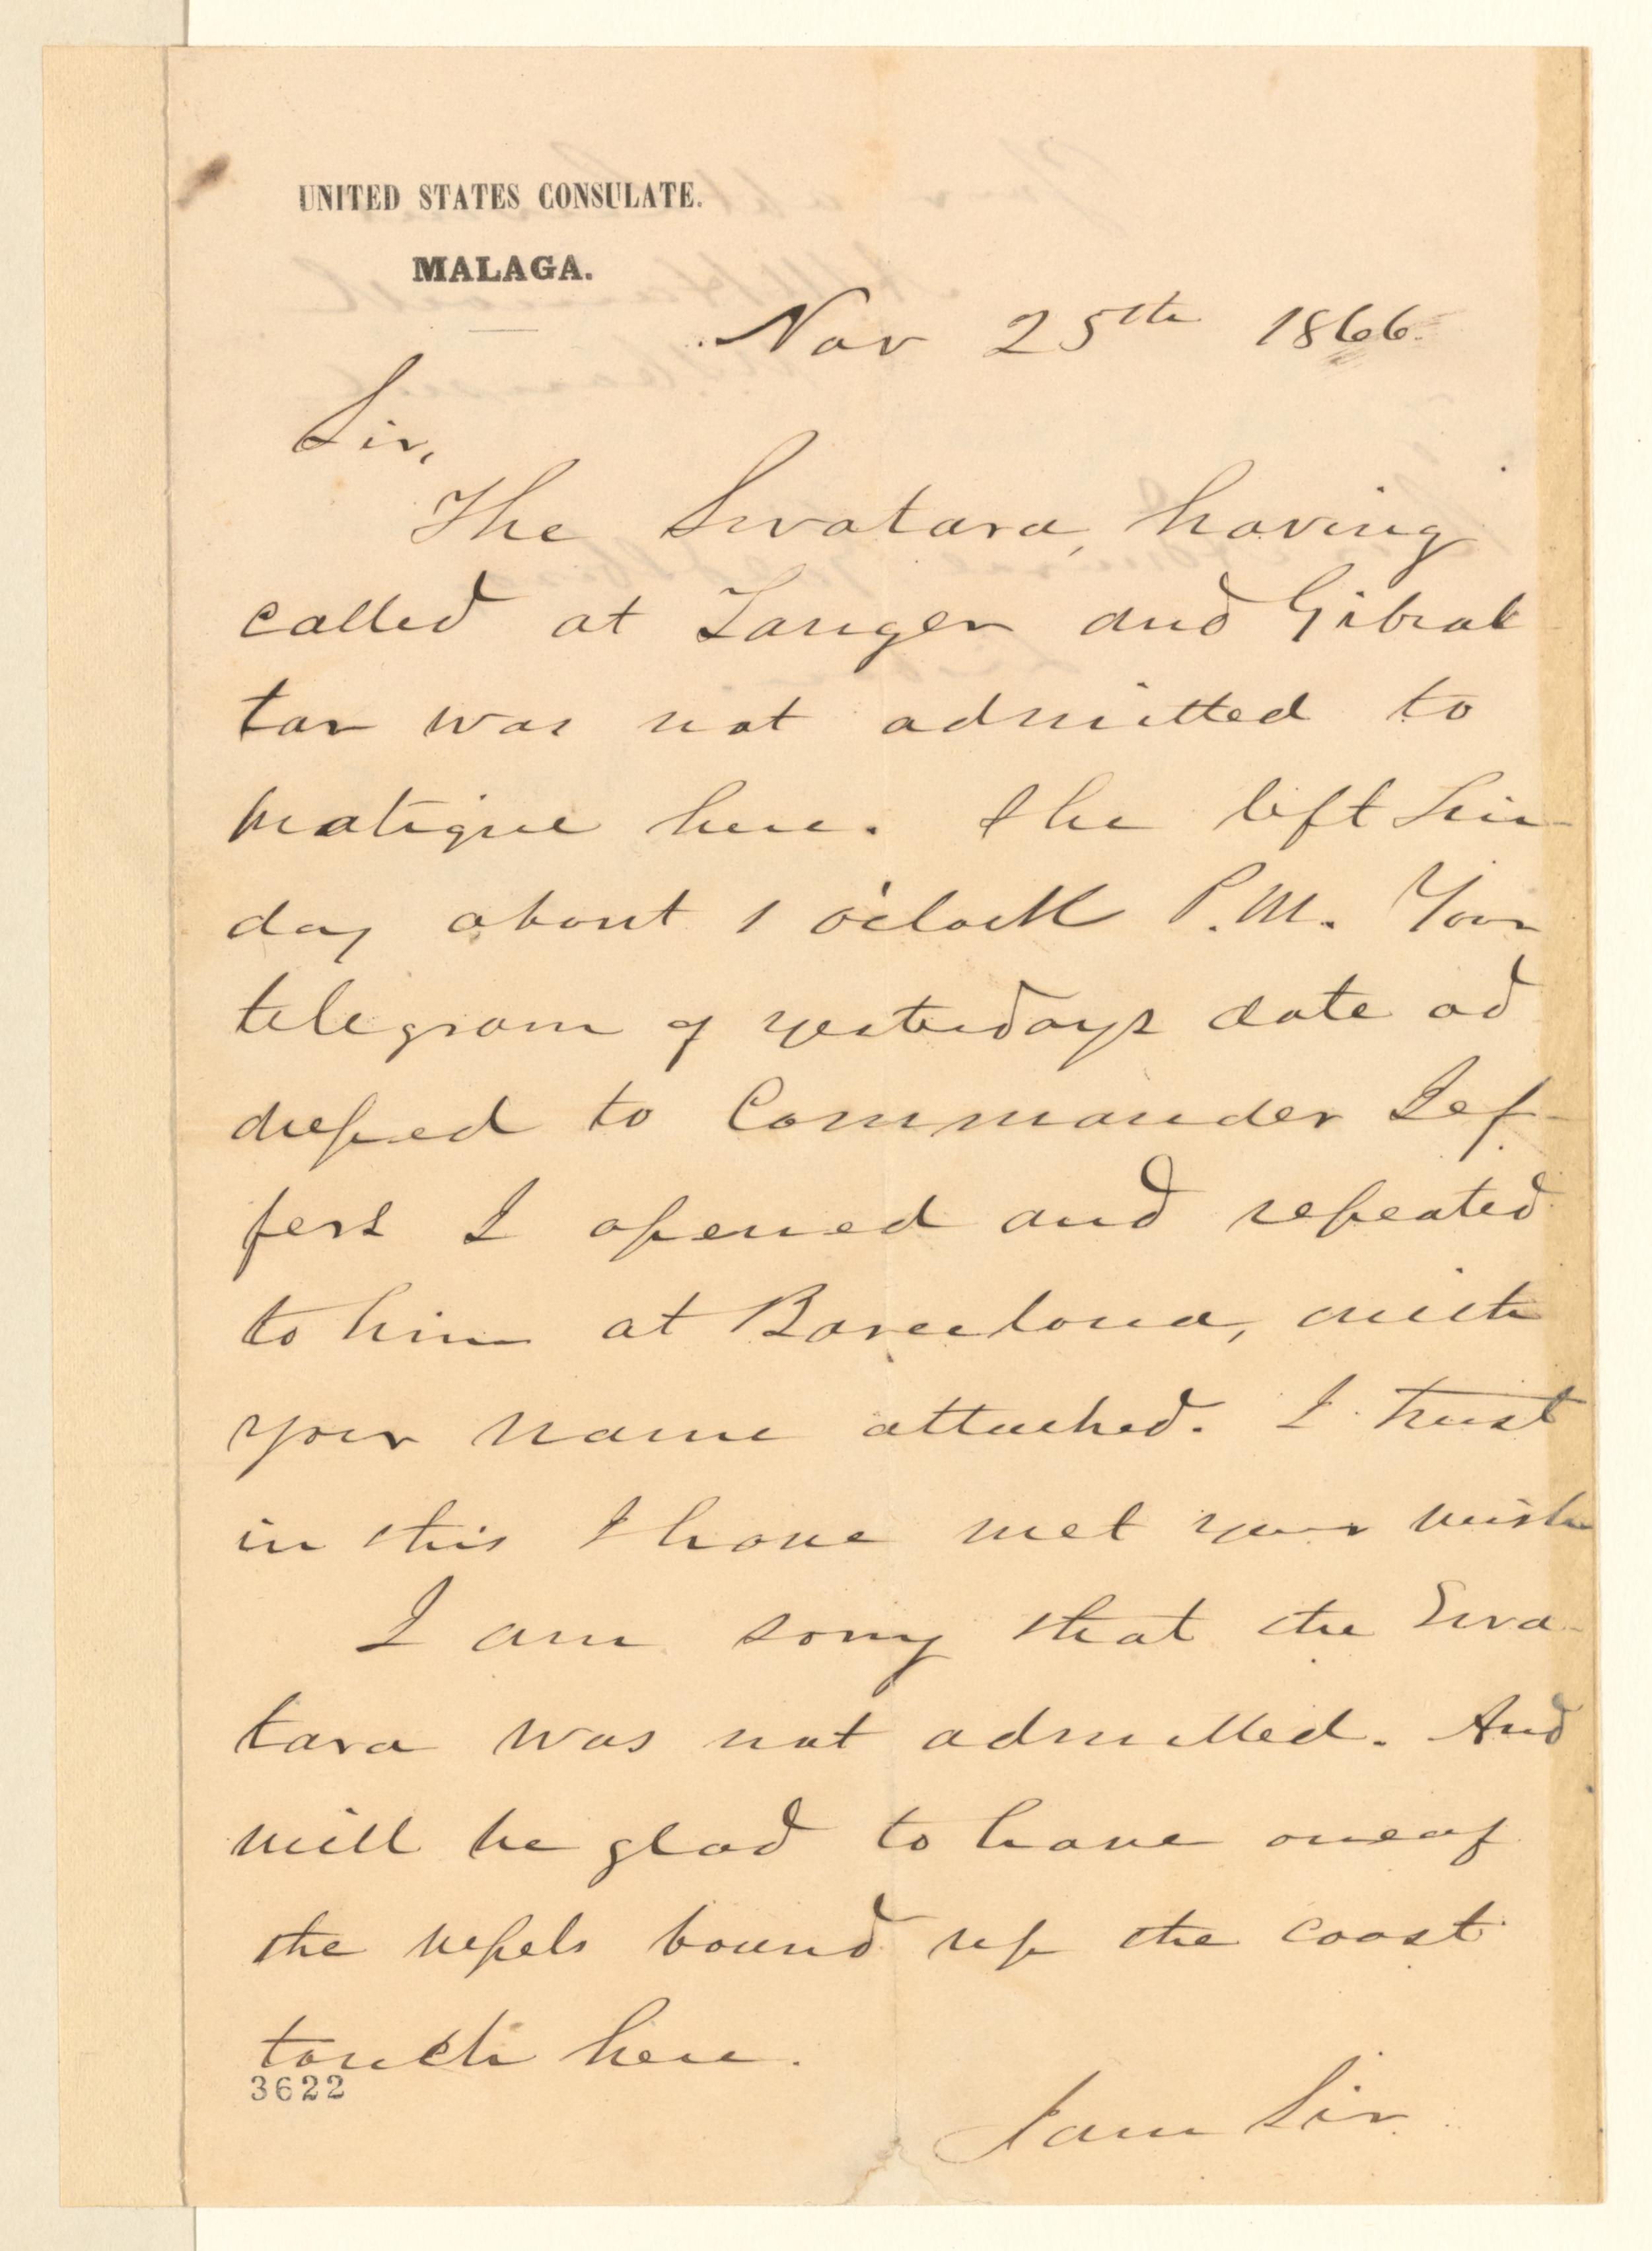 UNITED STATES CONSULATE.
MALAGA.
Nov 25th 1866.
Sir,
The Swatara, having
called at Tangier and Gibral
tar was not admitted to
pratique here. She left Sun-
day about 1 o'clock P.M. Your
telegram of yesterdays date ad
dressed to Commander Jef-
fers I opened and repeated
to him at Barcelona, with
your name attached. I trust
in this I have met your wish
I am sorry that the Swa-
tara was not admitted. And
will be glad to have one of
the vessels bound up the coast
touch here.
3622
I am Sir